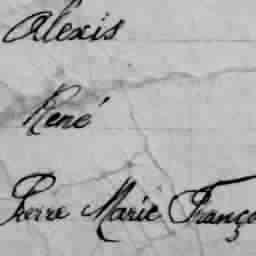 Alexis
René
Pierre Marie Franço